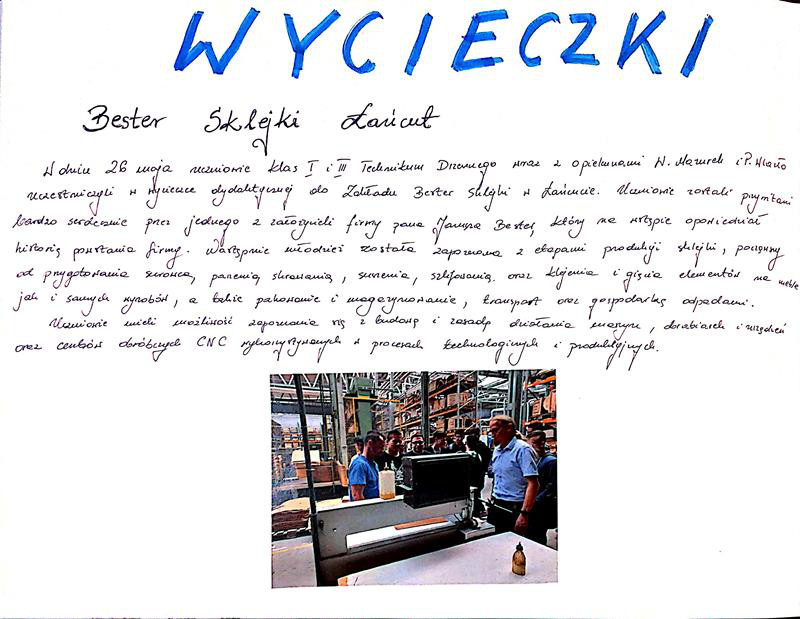 WYCIECZKI
Bester Sklejki Łańcut
W dniu 26 maja uczniowie klas I i III Technikum Drzewnego wraz z opiekunami W. Mazurek i P.
uczestniczyli w wycieczce dydaktycznej do Zakładu Bester Sklejki w Łańcucie. Uczniowie zostali przywitani
bardzo serdecznie przez jednego z założycieli firmy pana Janusza Bester, który na wstępie opowiedział
historię powstania firmy. Następnie młodzież została zapoznana z etapami produkcji sklejki, począwszy
od przygotowania surowca, parzenia, skrawania, suszenia, szlifowania oraz klejenia i gięcia elementów na meble
jak i samych wyrobów, a także pakowanie i magazynowanie, transport oraz gospodarkę odpadami.
Uczniowie mieli możliwość zapoznania się z budową i zasadą działania maszyn, obrabiarek i urządzeń
oraz centrów obróbczych CNC wykorzystywanych w procesach technologicznych i produkcyjnych.